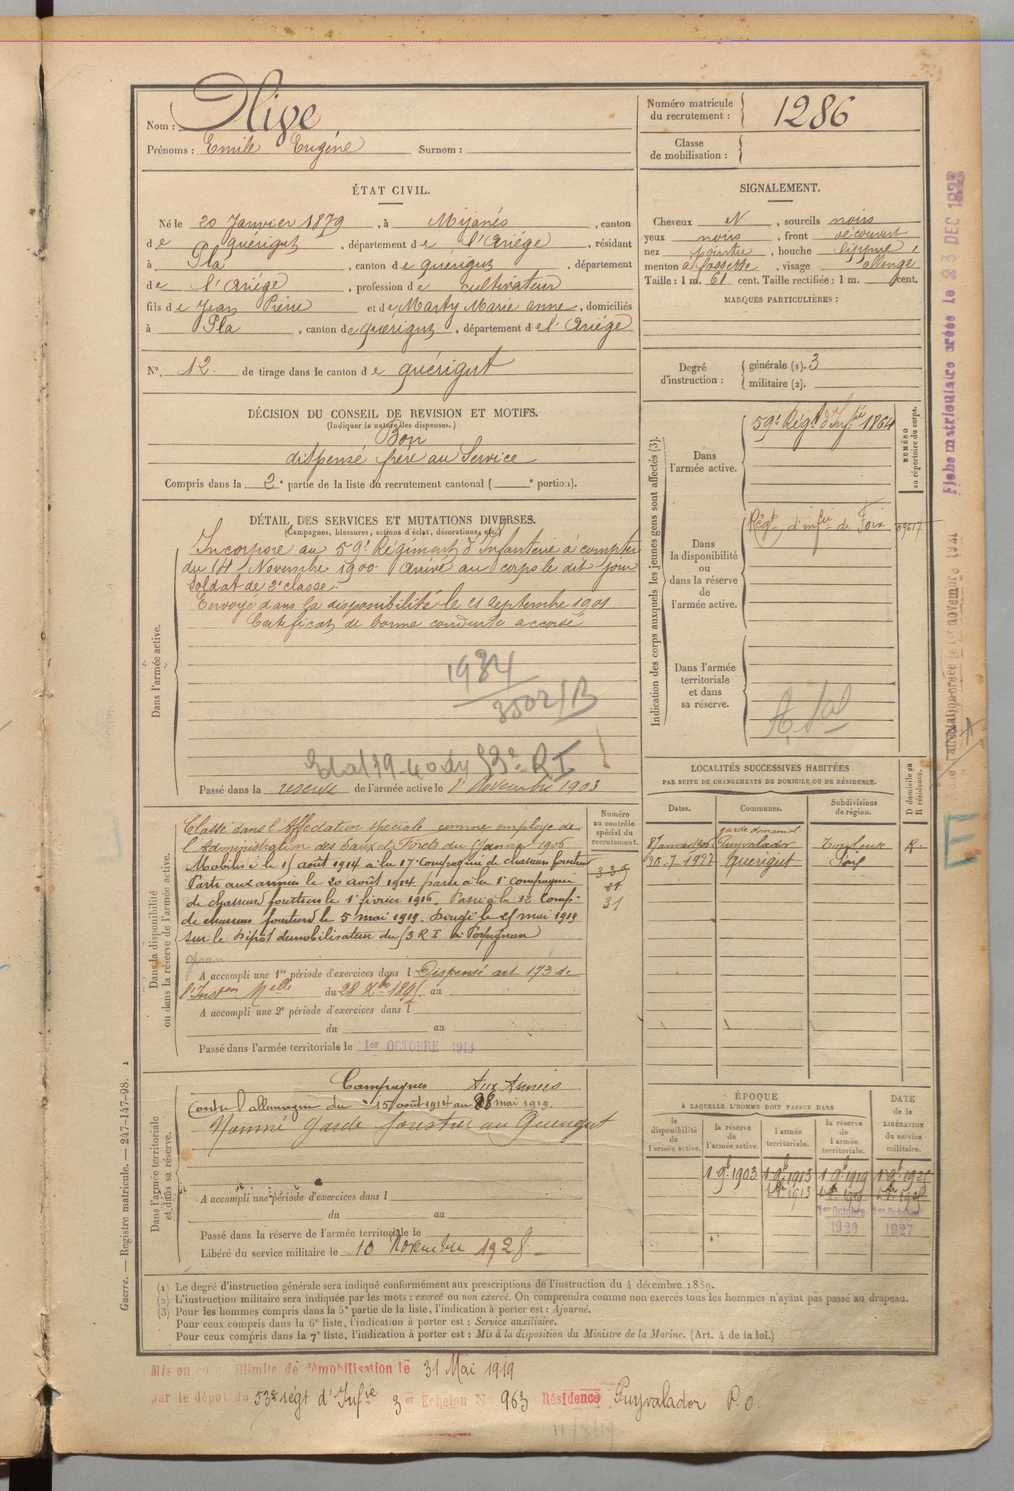 Nom : Olive
Prénoms : Emile Eugéne Surnom :
Numéro matricule du recrutement : 1286
Classe de mobilisation :
ÉTAT CIVIL.
Né le 20 Janvier 1879, à Mijanés, canton
de quérigut, département de l'Ariége, résidant
à Pla, canton de quérigut, département
de l'Ariége, profession de Cultivateur
fils de Jean Pierre et de Marty Marie anne, domiciliés
à Pla, canton de quérigut, département de l'Ariége
N°. 12 de tirage dans le canton de quérigut
SIGNALEMENT.
Cheveux N, sourcils noirs
yeux noirs, front découvert
nez pointu, bouche
menton à fossette, visage allongé
Taille : 1 m. 61 cent. Taille rectifiée : 1 m. cent.
MARQUES PARTICULIÈRES :
Degré d'instruction : générale (1). 3
militaire (2).
DÉCISION DU CONSEIL DE REVISION ET MOTIFS.
(Indiquer la nature des dispenses.)
Bon
dispensé frère au Service
Compris dans la 2e partie de la liste du recrutement cantonal ( e portion).
DÉTAIL DES SERVICES ET MUTATIONS DIVERSES.
(Campagnes, blessures, actions d'éclat, décorations, etc.)
Dans l'armée active.
Incorporé au 59e Régiment d'Infanterie à compter
du 14 Novembre 1900. Arrivé au corps le dit jour
Soldat de 2e classe.
Envoyé dans la disponibilité le 21 Septembre 1901
Certificat de bonne conduite accordé
1934
3502/B
53e R I
Passé dans la réserve de l'armée active le 1er Novembre 1903
Indication des corps auxquels les jeunes gens sont affectés (3).
NUMÉRO au répertoire du corps.
Dans l'armée active.
59e Régt d'Infie 1864
Dans la disponibilité ou dans la réserve de l'armée active.
Régt d'infie de Foix
Dans l'armée territoriale et dans sa réserve.
LOCALITÉS SUCCESSIVES HABITÉES
PAR SUITE DE CHANGEMENTS DE DOMICILE OU DE RÉSIDENCE.
Dates. Communes. Subdivisions de région. D domicile ou R résidence.
garde domanial
Puyvalador
Quérigut Foix
R
Dans la disponibilité ou dans la réserve de l'armée active.
Numéro au contrôle spécial du recrutement.
Classé dans l'Affectation Spéciale comme employé de
l'Administration des Eaux et Forêts du Janvier 1906
Mobilisé le 15 août 1914 à la 17e compagnie de chasseurs forestiers
Parti aux armées le 20 août 1914 passé à la 1e compagnie
de chasseurs forestiers le 1er février 1916. Passé à la 12 Comp.
de chasseurs forestiers le 5 mai 1919. Dirigé le 25 mai 1919
sur le Dépôt démobilisateur du 53 R I à Perpignan
31
A accompli une 1re période d'exercices dans l Dispensé art 173 de
l'Inston Melle du 28 Xbre 1895 au
A accompli une 2e période d'exercices dans l
du au
Passé dans l'armée territoriale le 1er OCTOBRE 1913
Dans l'armée territoriale et dans sa réserve.
Campagnes Aux Armées
Contre l'allemagne du 15 août 1914 au 28 mai 1919.
Nommé Garde forestier au Querigut
A accompli une période d'exercices dans l
du au
Passé dans la réserve de l'armée territoriale le
Libéré du service militaire le 10 Novembre 1928.
ÉPOQUE
À LAQUELLE L'HOMME DOIT PASSER DANS
DATE de la LIBÉRATION du service militaire.
la disponibilité de l'armée active. la réserve de l'armée active. l'armée territoriale. la réserve de l'armée territoriale.
1 9bre 1903 1 9bre 1913 1 9bre 1919 1 9bre 1925
1er Octobre 1er Octobre
1920 1927
(1) Le degré d'instruction générale sera indiqué conformément aux prescriptions de l'instruction du 4 décembre 1889.
(2) L'instruction militaire sera indiquée par les mots : exercé ou non exercé. On comprendra comme non exercés tous les hommes n'ayant pas passé au drapeau.
(3) Pour les hommes compris dans la 5e partie de la liste, l'indication à porter est : Ajourné.
Pour ceux compris dans la 6e liste, l'indication à porter est : Service auxiliaire.
Pour ceux compris dans la 7e liste, l'indication à porter est : Mis à la disposition du Ministre de la Marine. (Art. 4 de la loi.)
Mis en congé illimité de démobilisation le 31 Mai 1919
par le dépôt du 53e régt d'Infie 3er Echelon N° 963 Résidence Puyvalador P.O.
Guerre. — Registre matricule. — 247-147-98.
Fiche matriculaire créée le 23 DEC 1932